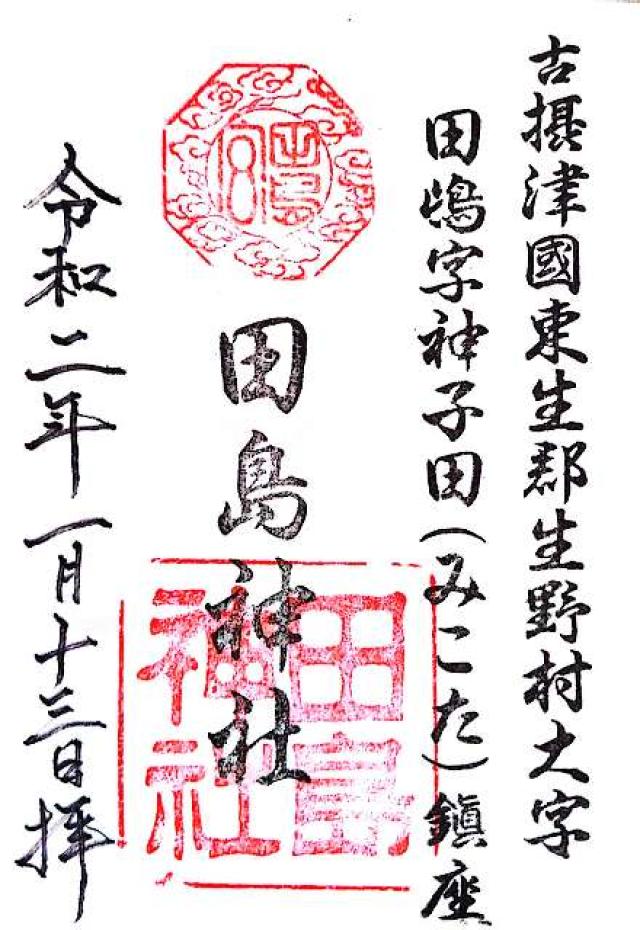 古摂津國東生郡生野村大字
田嶋字神子田(みこた)鎮座
田島神社
田島
神社
令和二年一月十三日拝